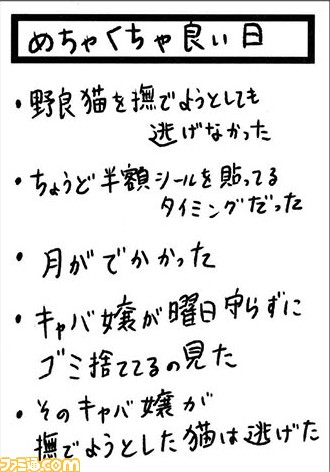 めちゃくちゃ良い日
・野良猫を撫でようとしても
逃げなかった
・ちょうど半額シールを貼ってる
タイミングだった
・月がでかかった
・キャバ嬢が曜日守らずに
ゴミ捨ててるの見た
・そのキャバ嬢が
撫でようとした猫は逃げた
ファミ通.com